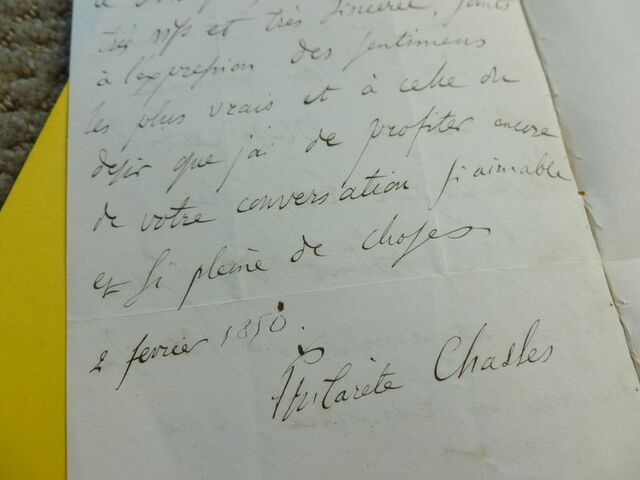 très vifs et très sincères, joints
à l'expression des sentimens
les plus vrais et à celle du
desir que j'ai de profiter encore
de votre conversation si aimable
et si pleine de choses
2 fevrier 1850.
Philarète Chasles